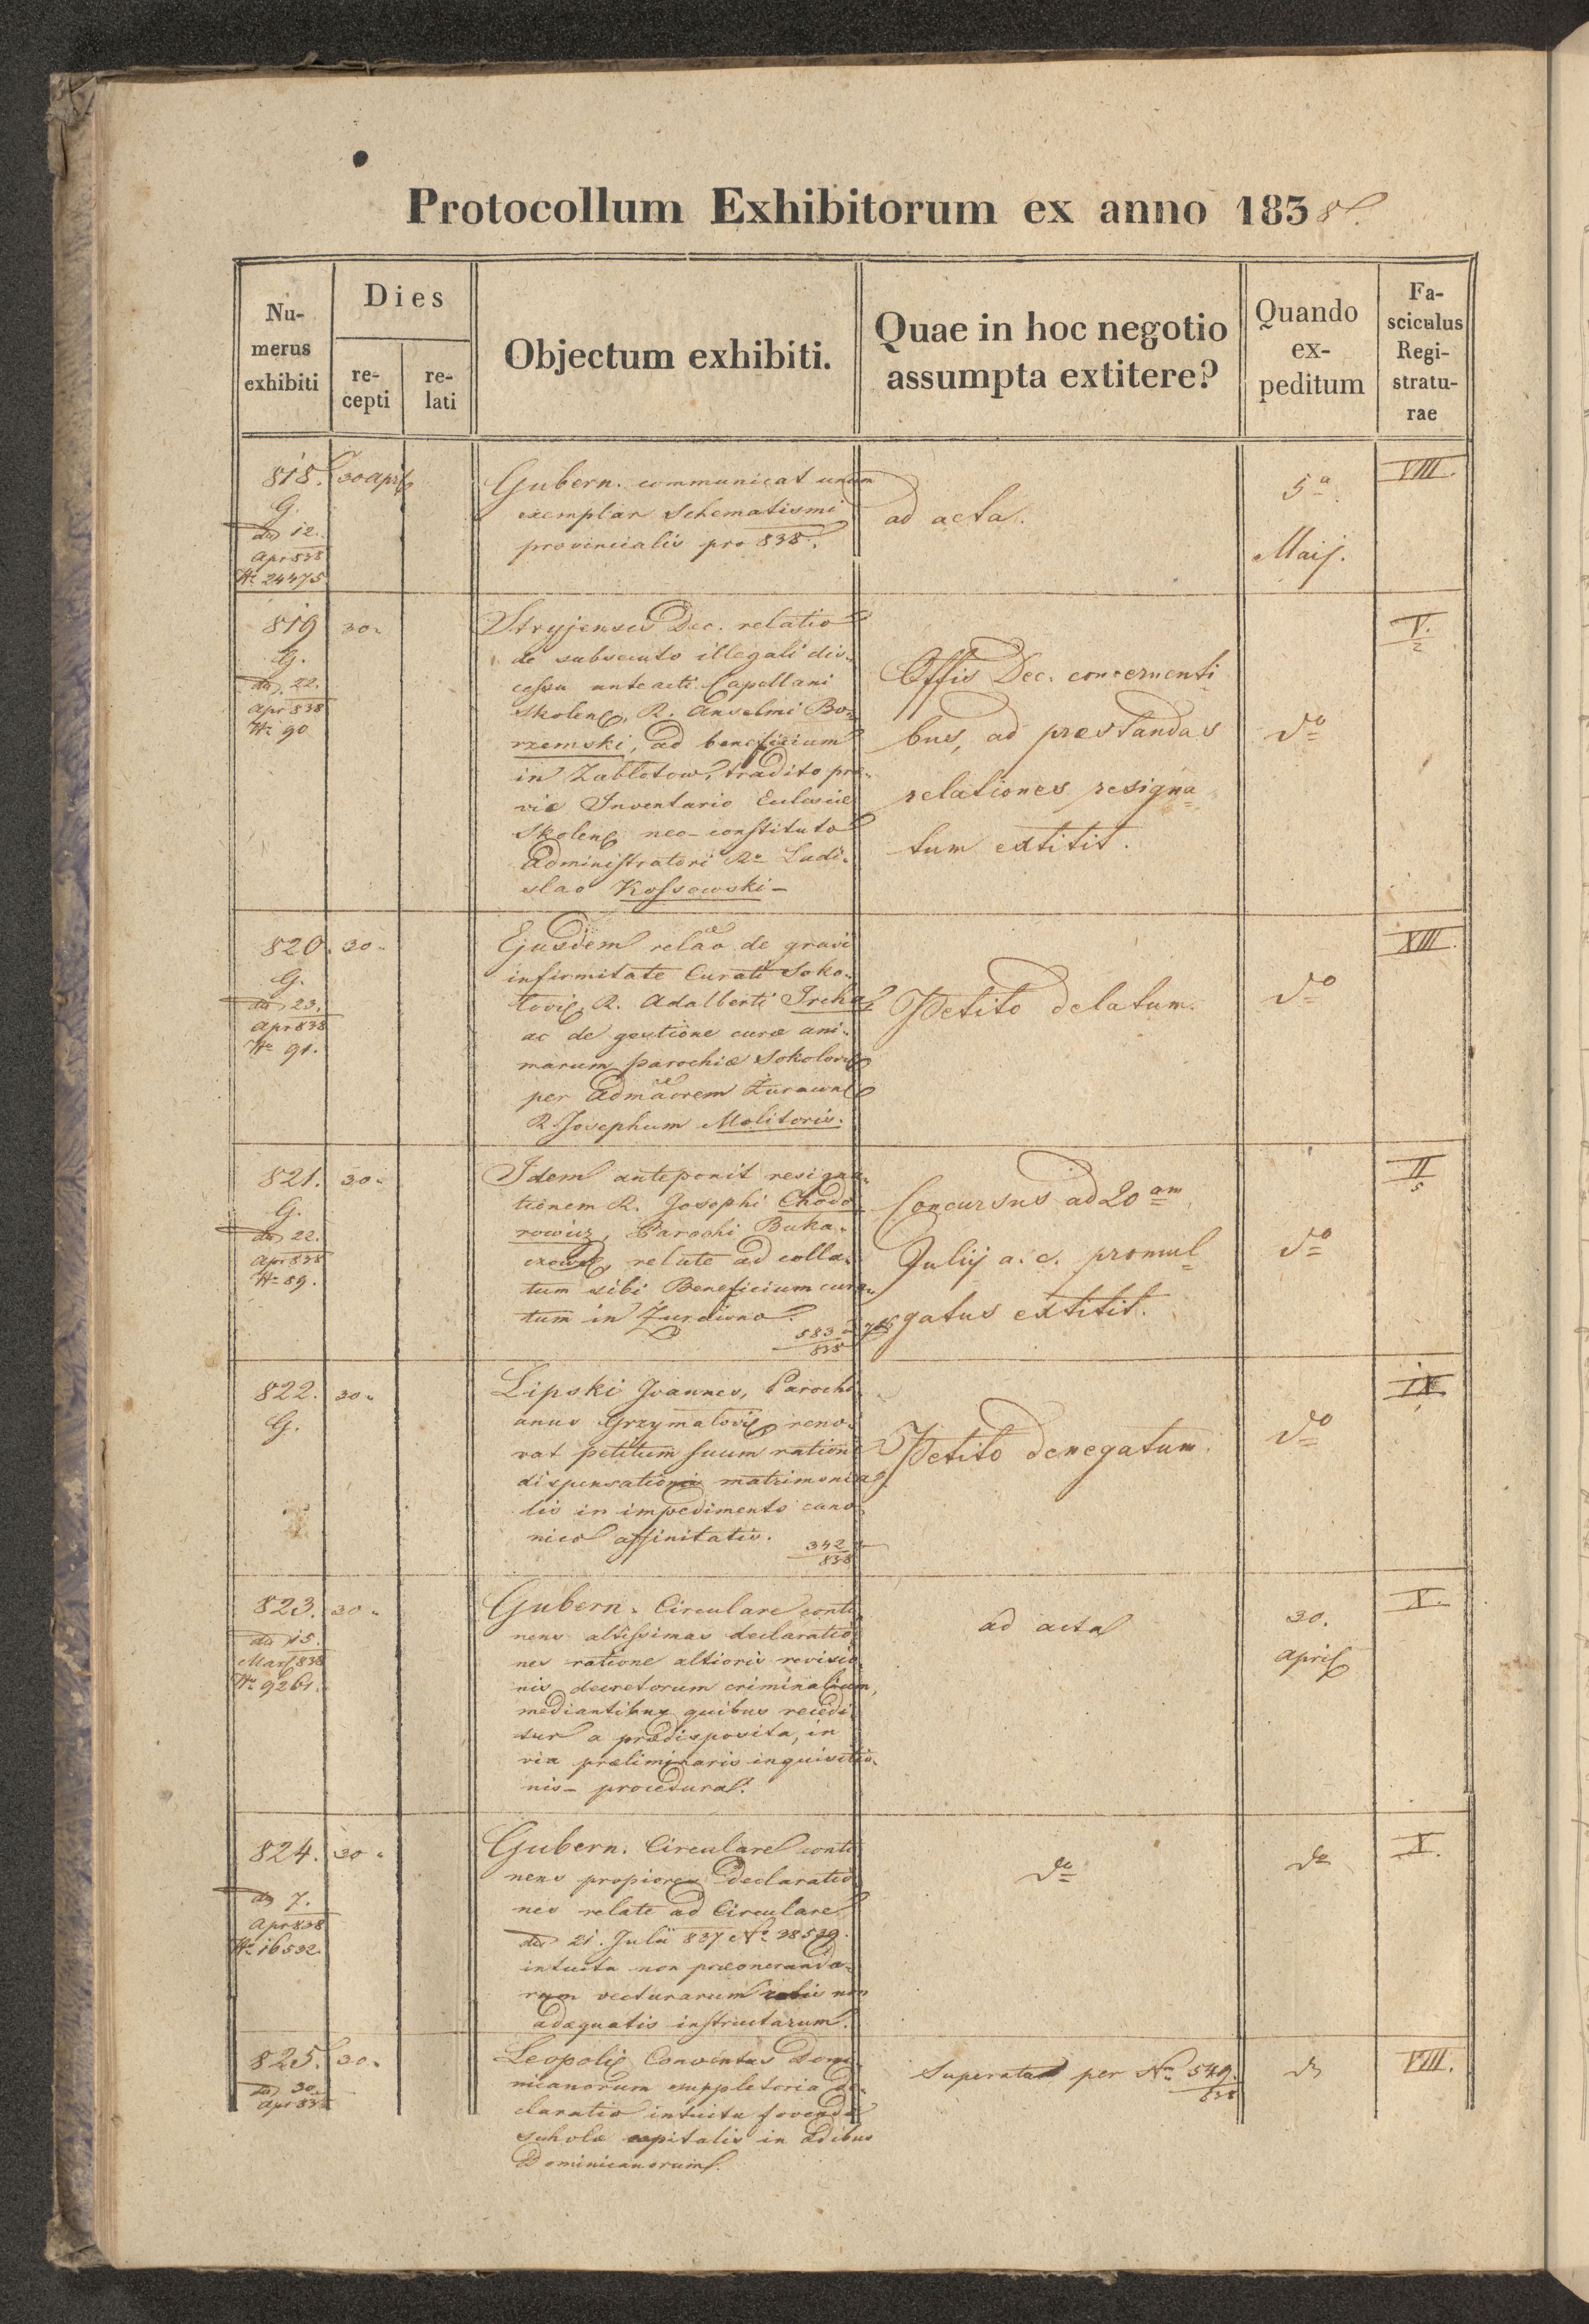 Protocollum Exhibitorum ex anno 1838.
Nu-
merus
exhibiti
Dies
re-
cepti
re-
lati
Objectum exhibiti.
Quae in hoc negotio
assumpta extitere?
Quando
ex-
peditum
Fa-
sciculus
Regi-
stratu-
rae
818.
G.
dto 12.
Apr 838
Nr. 24475
30 April
Gubern. communicat unum
exemplar Schematismi
provincialis pro 838.
ad acta.
5a
Maij.
VIII.
819
G.
dto 22.
Apr 838
Nr. 90
30.
Stryjensis Dec. relatio
de subsecuto illegali dis-
cessu anteacti Capellani
Skolens, R. Anselmi Bo-
rzemski, ad beneficium
in Zablotow, tradito prae-
vie Inventario Ecclesiae
Skolens neo-constituto
Administratori Ro Ladi-
slao Kossowski -
Offis Dec. concernenti
bus, ad praestandas
relationes resigna
tum extitit.
do
V.
2
820.
G.
dto 23.
Apr 838
Nr. 91.
30.
Ejusdem relao de gravi
infirmitate Curati Soko-
lovis R. Adalberti
ac de gestione curae ani-
marum parochiae Sokolovis
per Admaorem Zurawns
R. Josephum Molitoris.
Petito delatum.
do
XIII.
821.
G.
dto 22.
Apr 838
Nr. 89.
30.
Idem anteponit resigna-
tionem R. Josephi Chodo-
rowicz, Parochi Buka-
czows, relate ad colla-
tum sibi Beneficium cura-
tum in Zurawno.
583
838
Concursus ad 20am
Julij a. c. promul
gatus extitit.
do
II
5
822.
G.
30.
Lipski Joannes, Parochi
anus Grzymalovis reno-
vat petitum suum ratione
dispensationis matrimonia
lis in impedimento cano
nico affinitatis.
342
838
Petito denegatum.
do
IX
823.
dto 15.
Mart 838
Nr. 9261.
30.
Gubern. Circulare conti
nens altissimas declaratio
nes ratione altioris revisio
nis decretorum criminalium,
mediantibus quibus recedi
tur a praedisposita, in
via praeliminaris inquisitio-
nis - procedura.
ad acta
30.
April
X.
824.
dto 7.
Apr 838
Nr. 16532.
30.
Gubern. Circulare conti
nens propiores declaratio
nes relate ad Circulare
dto 21. Julii 837 No 38539.
intuitu non praeoneranda-
rum vecturarum rotis non
adaequatis instructarum.
do
do
X.
825.
dto 30.
Apr 838
30.
Leopolis Conventus Domi
nicanorum suppletoria de-
claratio intuitu fovendae
scholae capitalis in aedibus
Dominicanorum.
Superatum per Nm 549.
838
do
VIII.